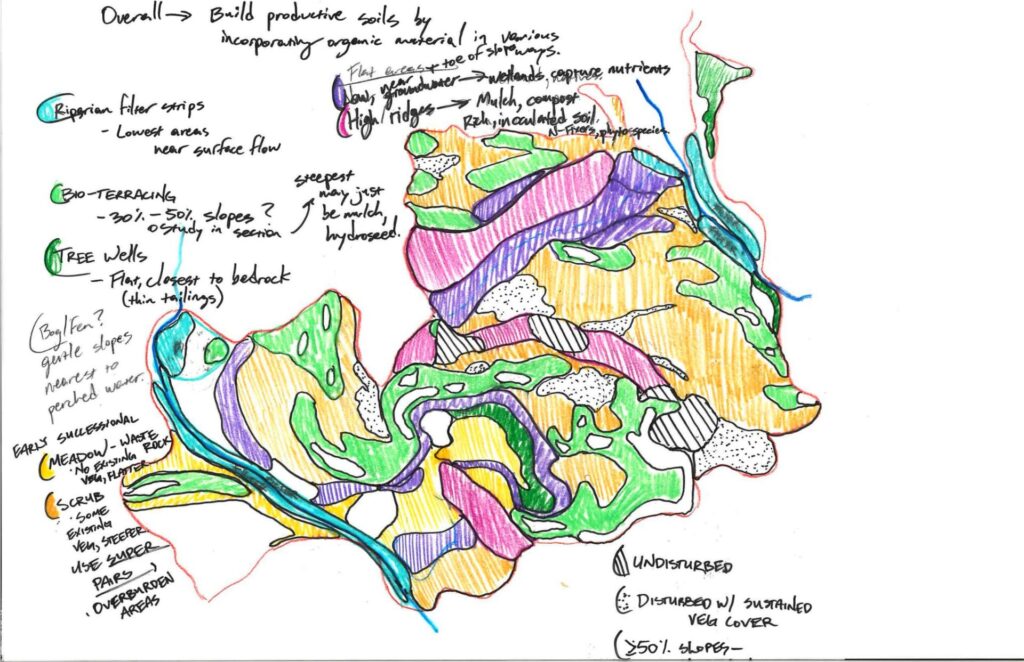 Overall → Build productive soils by
incorporating organic material in various
ways.
Flat areas + toe of slope
Low, near groundwater → wetlands, capture nutrients
High/ridges → Mulch, compost
Rich, inoculated soil.
N-Fixers, phyto species.
Riparian filter strips
- Lowest areas
near surface flow
BIO-TERRACING
- 30% - 50% slopes?
study in section
steepest
may just
be mulch,
hydroseed.
TREE Wells
- Flat, closest to bedrock
(thin tailings)
Bog/Fen?
gentle slopes
nearest to
perched water.
EARLY SUCCESSIONAL
MEADOW - WASTE ROCK
· NO EXISTING
VEG, FLATTER
SCRUB
· SOME
EXISTING
VEG, STEEPER
USE SUPER
PAIRS
· OVERBURDEN
AREAS
UNDISTURBED
DISTURBED W/ SUSTAINED
VEG COVER
≥50% SLOPES-